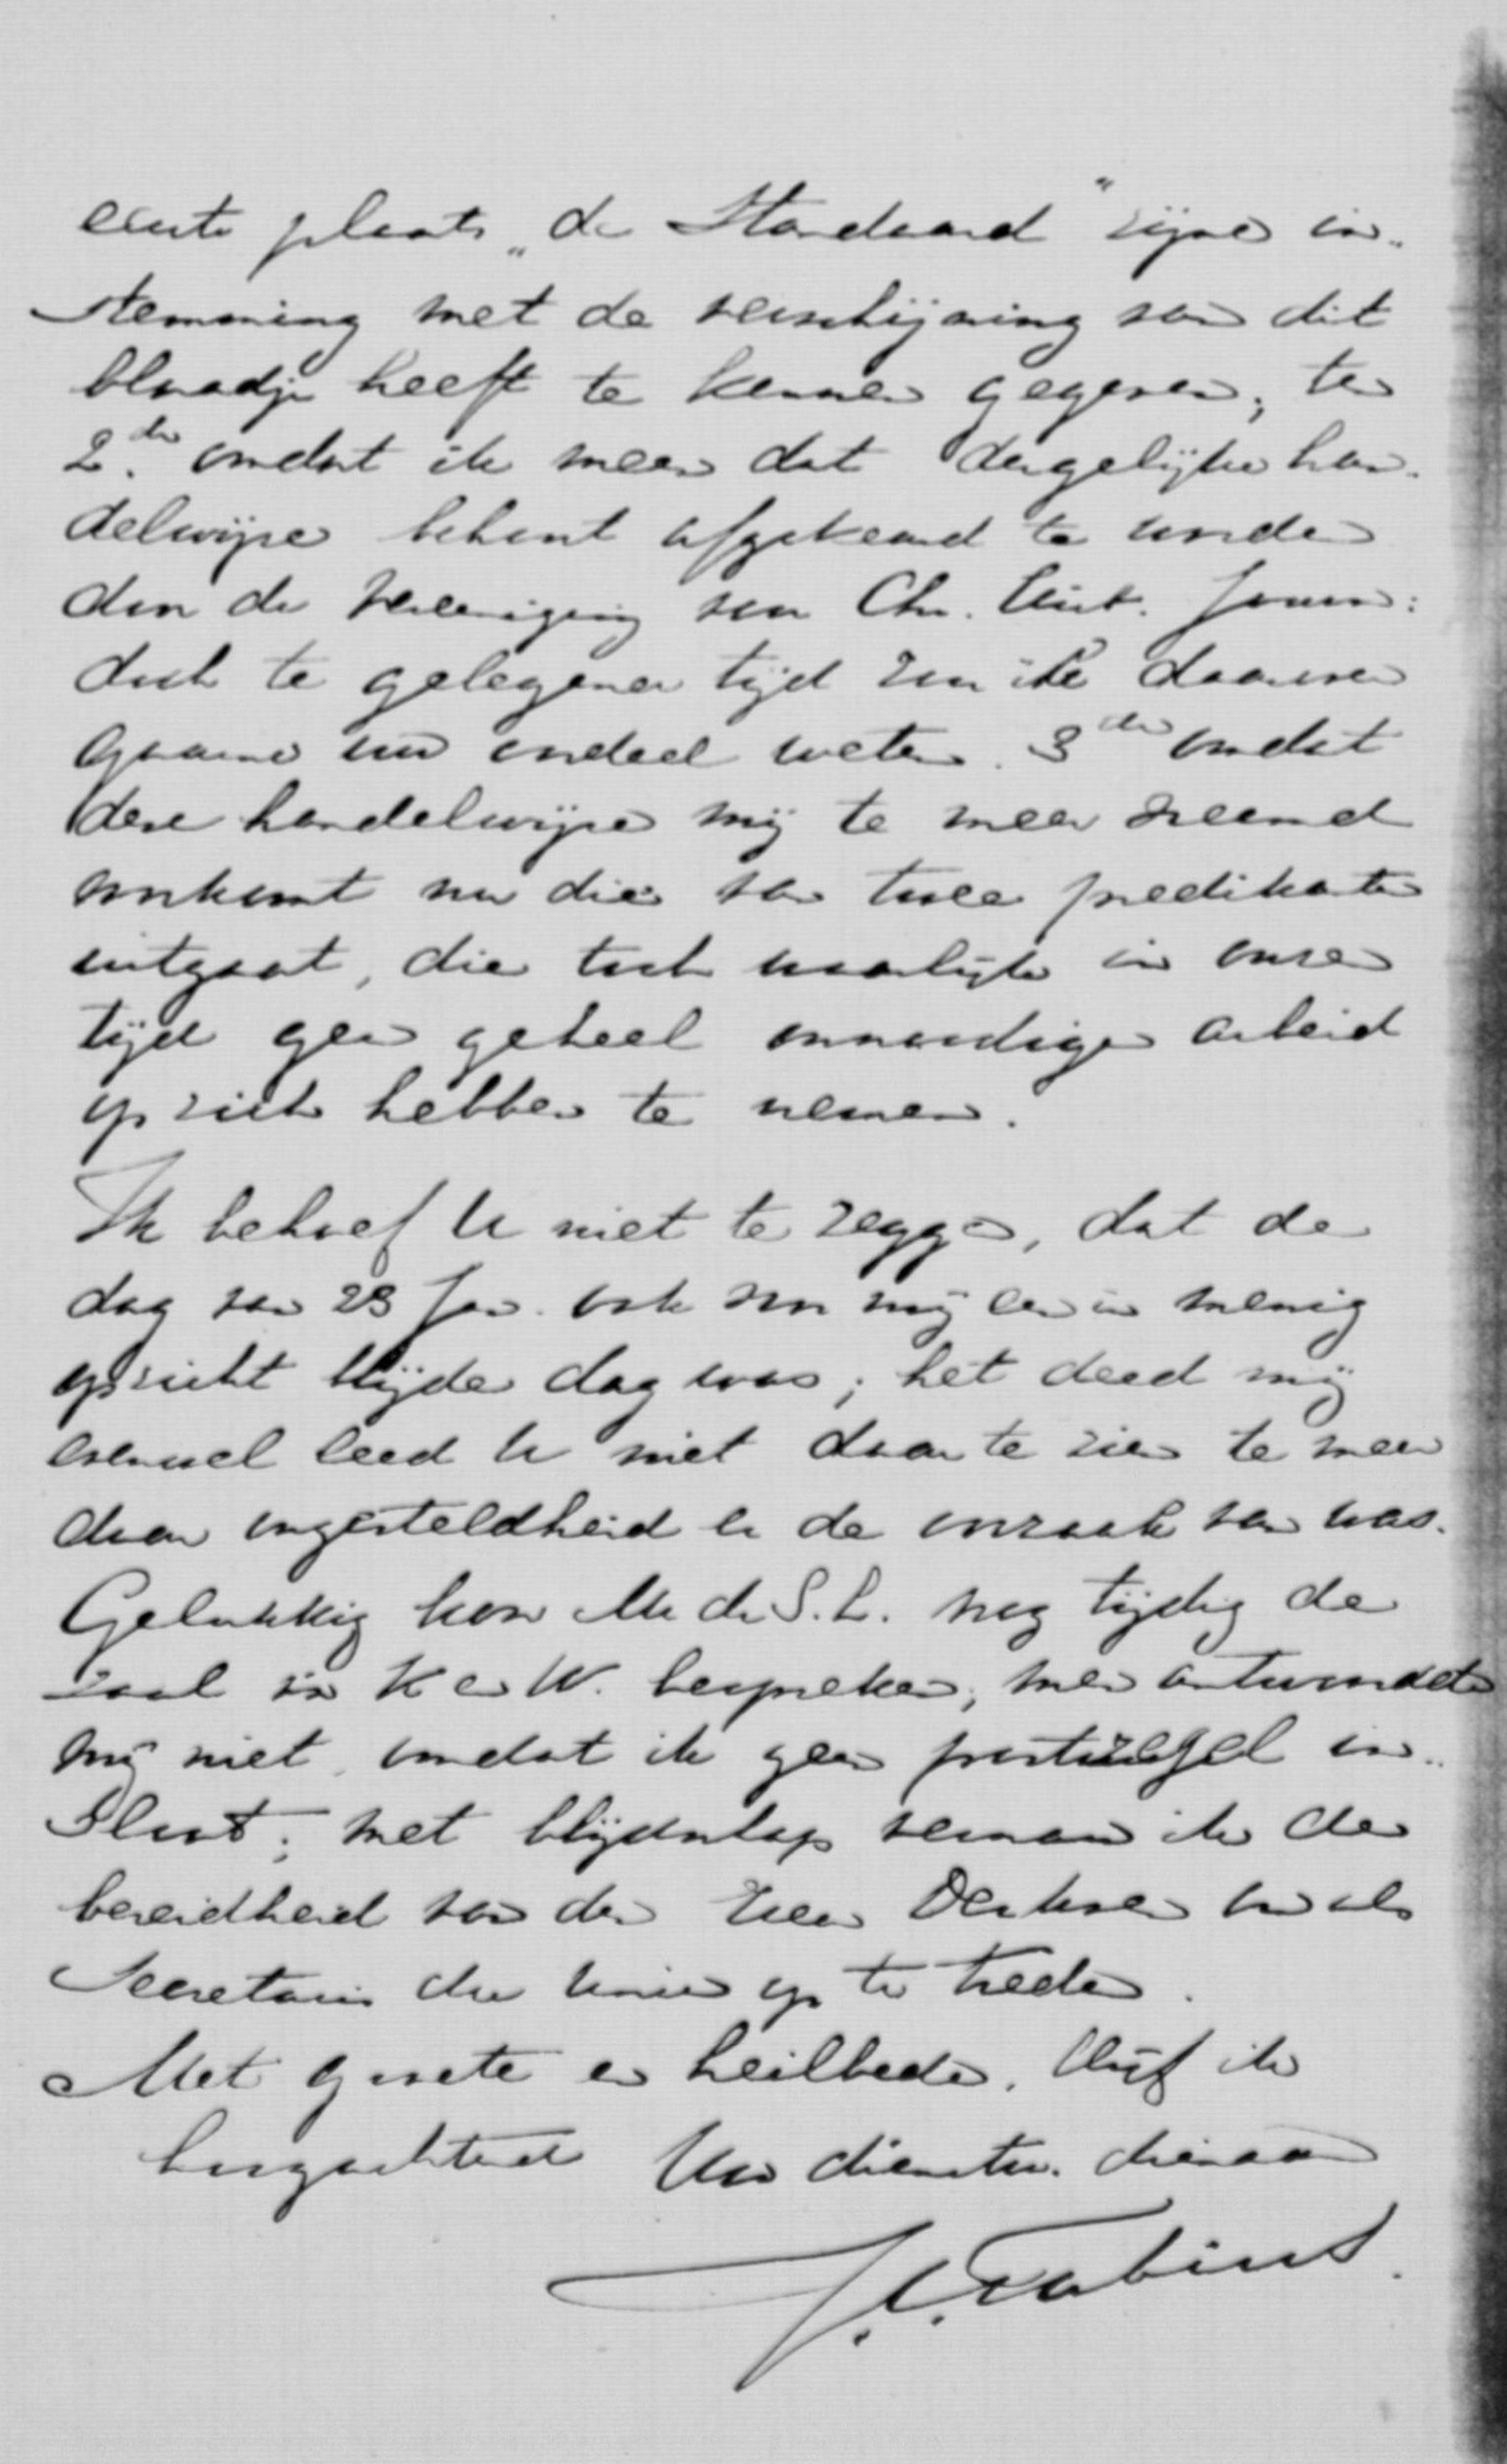 eerste plaats „de Standaard" zijne in„
stemming met de verschijning van dit
blaadje heeft te kennen gegeven; ten
2.de omdat ik meen dat dergelijke han„
delwijze behoort afgekeurd te worden
door de Vereeniging van Chr. Hist. Journ:
doch te gelegener tijd zou ik daarover
gaarne uw oordeel weten. 3de omdat
deze handelwijze mij te meer vreemd
voorkomt nu die van twee predikanten
uitgaat, die toch waarlijk in onzen
tijd geen geheel onnoodigen arbeid
op zich hebben te nemen.
Ik behoef U niet te zeggen, dat de
dag van 23 Jan. ook voor mij een in menig
opzicht blijde dag was; het deed mij
evenwel leed U niet daar te zien te meer
daar ongesteldheid er de oorzaak van was.
Gelukkig kon Mr de S. L. nog tijdig de
zaal in K en W. bespreken; men antwoordde
mij niet omdat ik geen postzegel in„
sloot; met blijdschap vernam ik de
bereidheid van den Heer Derksen om als
Secretaris der Unie op te treden.
Met groete en heilbede, blijf ik
hoogachtend Uw dienstw. dienaar
J. C. Fabius.